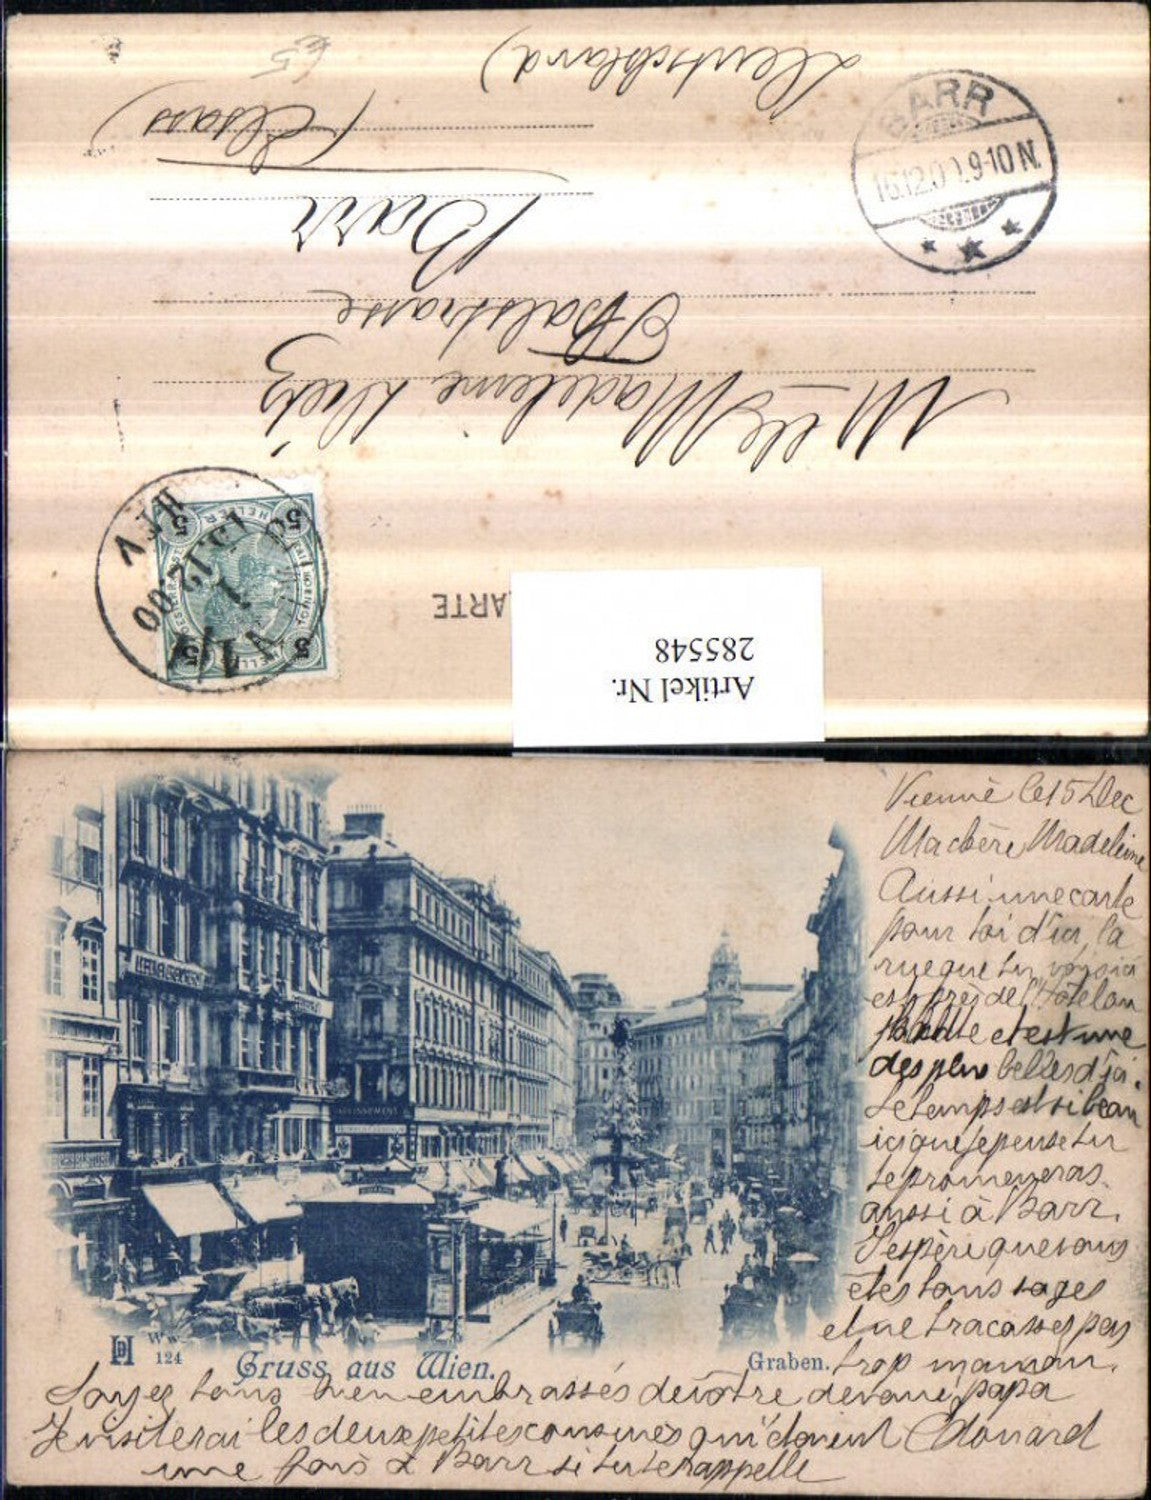 Deutschland)
(Elsass)
65
Barr
Thalstrasse
Mlle Madeleine Dietz
BARR
16.12.00.9-10N.
WIEN
1
13.12.00
5 HELLER 5
5 HELLER 5
ARTE
Artikel Nr.
285548
Vienne le 15 Dec
Ma chère Madeleine
Aussi une carte
pour toi d'ici, la
rue que tu vois ici
est près de l'Hôtel au
et est une
des plus belles d'ici.
Le temps est si beau
ici que je pense tu
te promeneras
aussi à Barr.
J'espère que vous
êtes tous sages
et ne tracassez pas
trop maman.
Soyez tous bien embrassés de votre dévoué papa
Je visiterai les deux petites cousines qui étaient Edouard
une fois à Barr si tu te rappelle
HD
W.
124
Gruss aus Wien.
Graben.